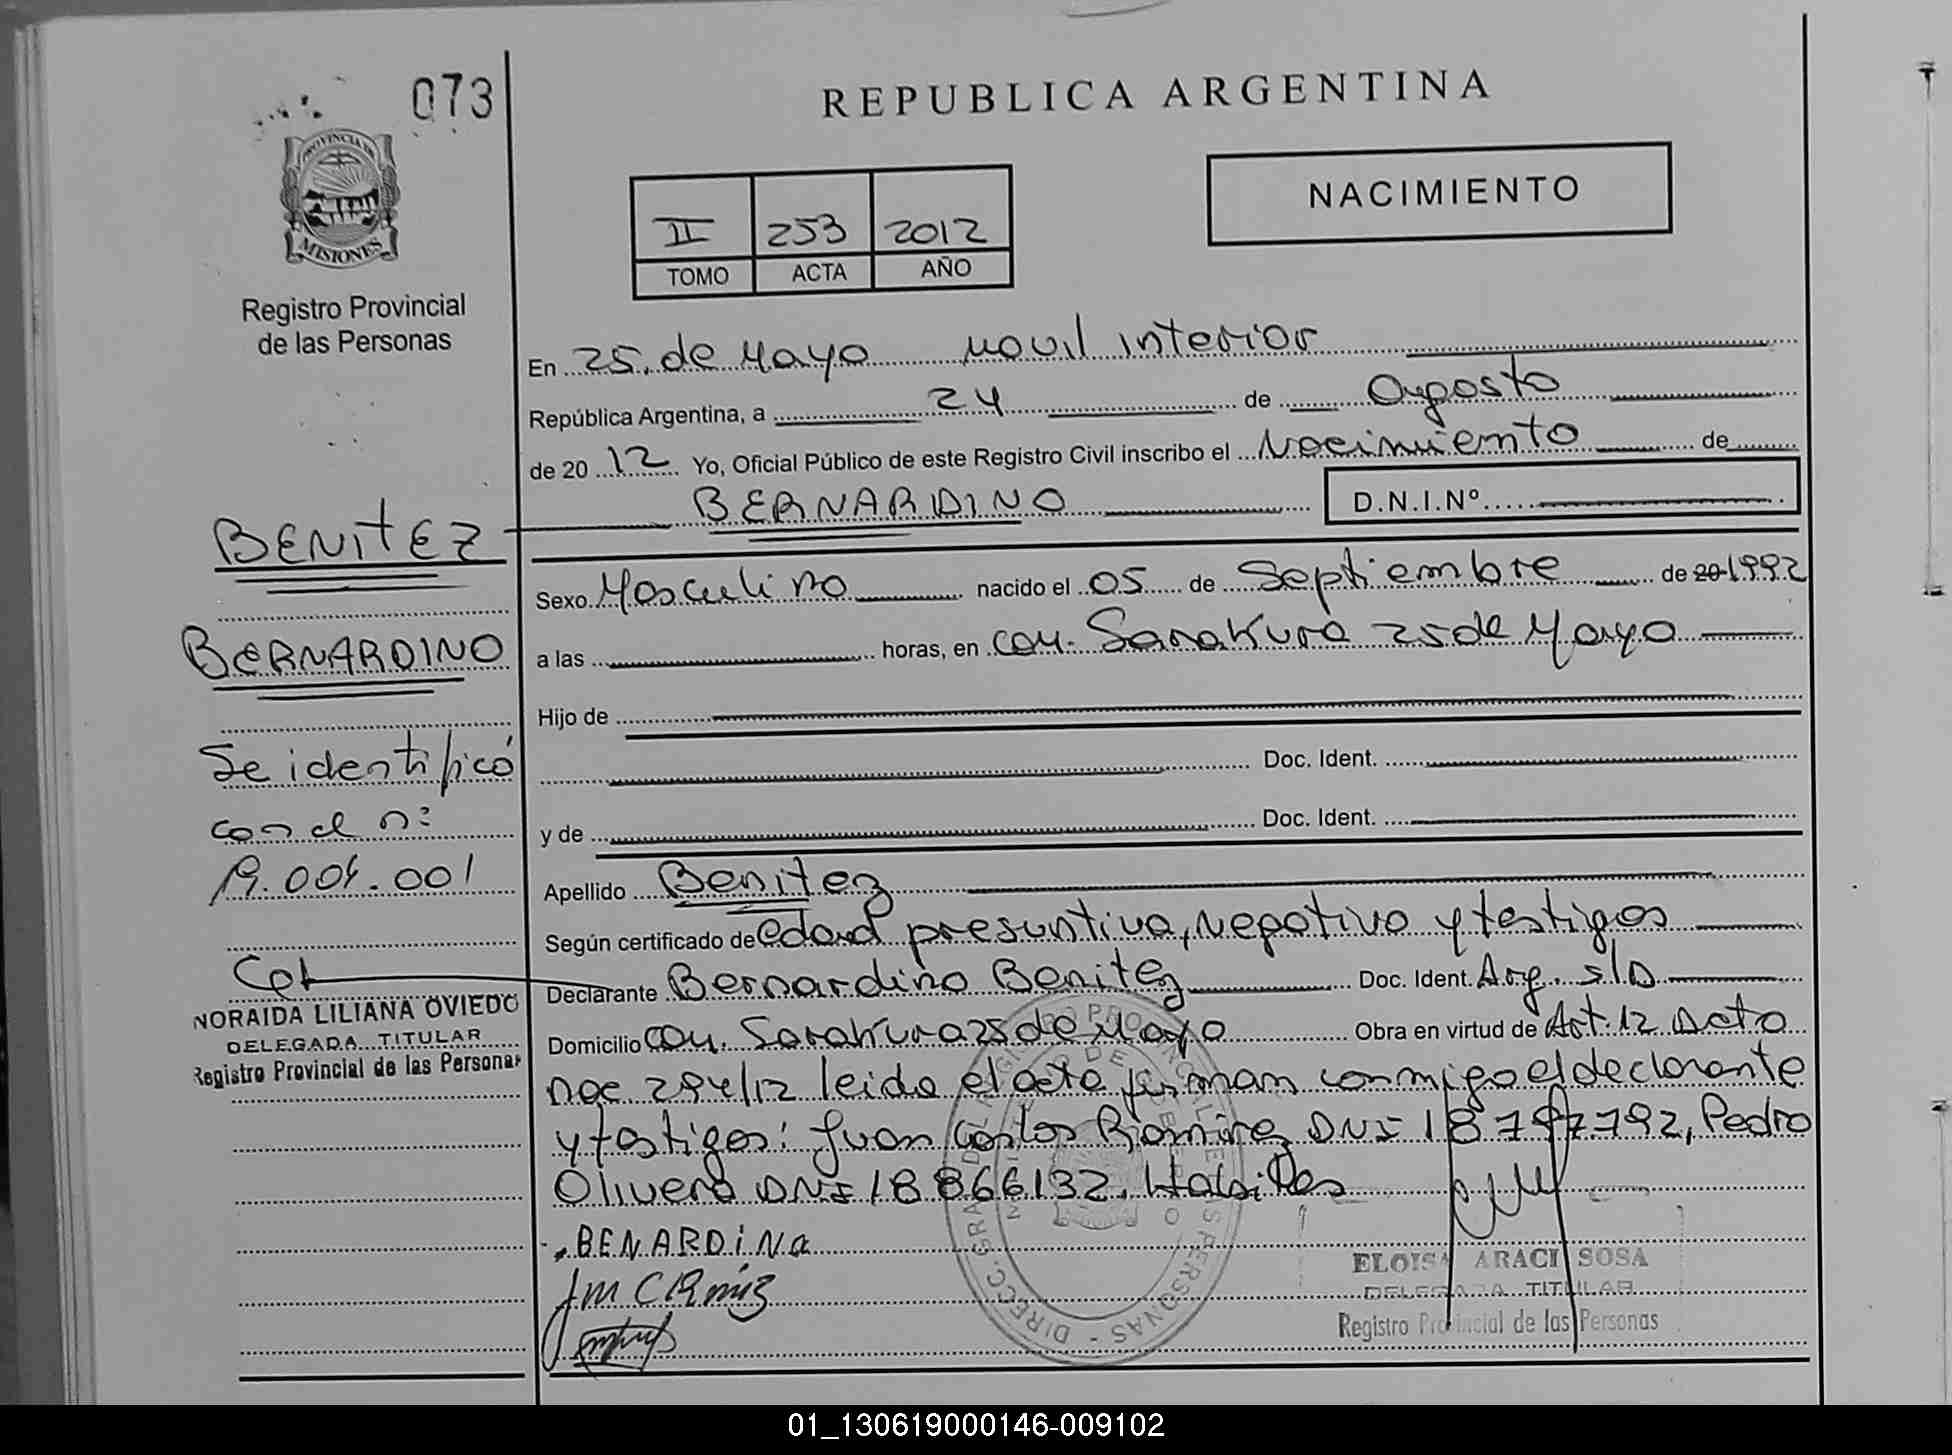 073
PROVINCIA DE
MISIONES
Registro Provincial
de las Personas
REPUBLICA ARGENTINA
NACIMIENTO
II 253 2012
TOMO ACTA AÑO
En 25 de Mayo movil interior
República Argentina, a 24 de Agosto
de 20 12 Yo, Oficial Público de este Registro Civil inscribo el Nacimiento de
BERNARDINO D.N.I.Nº
Sexo Masculino nacido el 05 de Septiembre de 20 1992
a las horas, en com. Sarakura 25 de Mayo
Hijo de
Doc. Ident.
y de Doc. Ident.
Apellido Benitez
Según certificado de edad presuntiva, Negativo y testigos
Declarante Bernardino Benitez Doc. Ident. Arg. s/D
Domicilio com. Sarakura 25 de Mayo Obra en virtud de Art. 12 Acto
294/12 leido el acta firman conmigo el declarante
y testigos: Juan Carlos Ramirez DNI 18 797.792, Pedro
Olivera DNI 18 866132, Habiles
BENARDINa
ELOISA ARACI SOSA
DELEGADA TITULAR
Registro Provincial de las Personas
BENITEZ
BERNARDINO
Se identificó
con el nº
19.004.001
NORAIDA LILIANA OVIEDO
DELEGADA TITULAR
Registro Provincial de las Personas
01_130619000146-009102